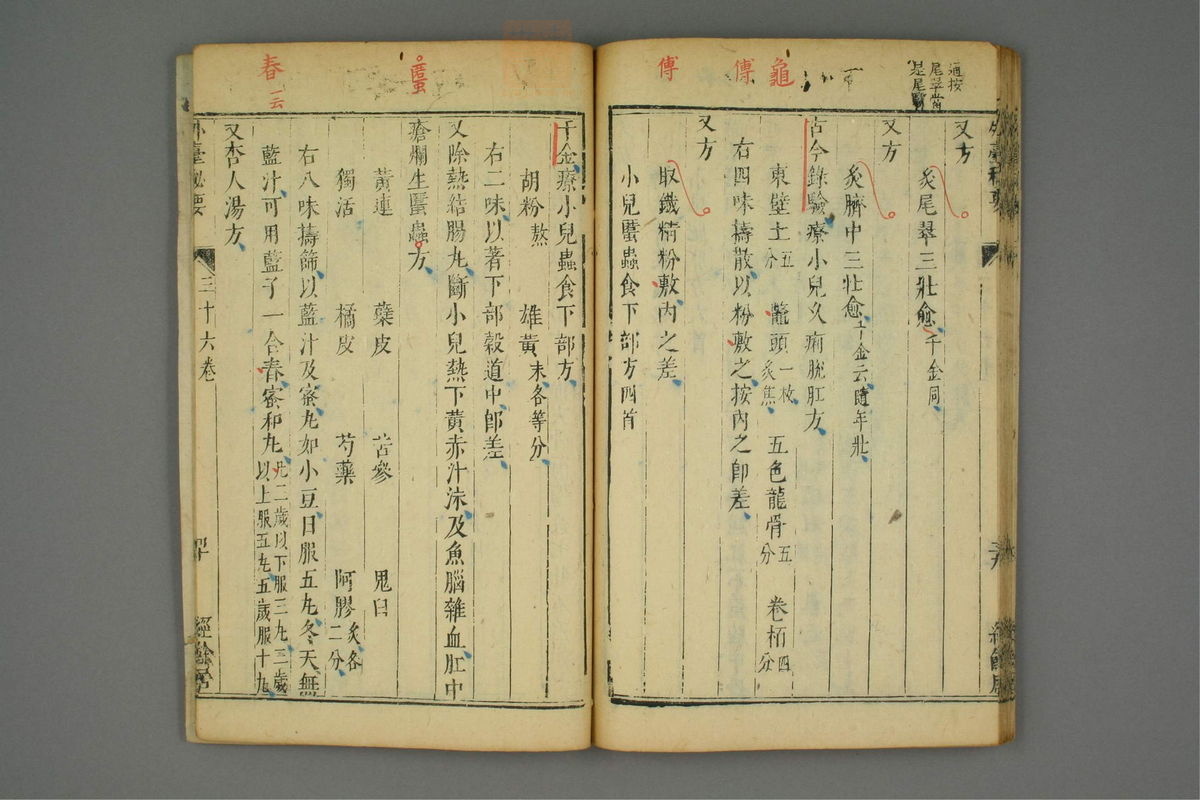 通按
尾翠當
是尾
龜
傅
傅
又方
炙尾翠三壯愈千金同
又方
炙臍中三壯愈千金云隨年壯
古今錄驗療小兒久痢脫肛方
東壁土五分 鼈頭一枚炙焦 五色龍骨五分 卷栢四分
右四味擣散以粉敷之按內之卽差
又方
取鐵精粉敷內之差
小兒䘌蟲食下部方四首
䘌
春一云
千金療小兒蟲食下部方
胡粉熬 雄黃末各等分
右二味以著下部穀道中卽差
又除熱結腸丸斷小兒熱下黃赤汁沫及魚腦雜血肛中
瘡爛生䘌蟲方
黃連 蘗皮 苦參 鬼臼
獨活 橘皮 芍藥 阿膠炙各二分
右八味擣篩以藍汁及蜜丸如小豆日服五丸冬天無
藍汁可用藍子一合春蜜和丸凡二歲以下服三丸三歲以上服五丸五歲服十丸
又杏人湯方
外臺秘要 三十六卷 四十 經餘居